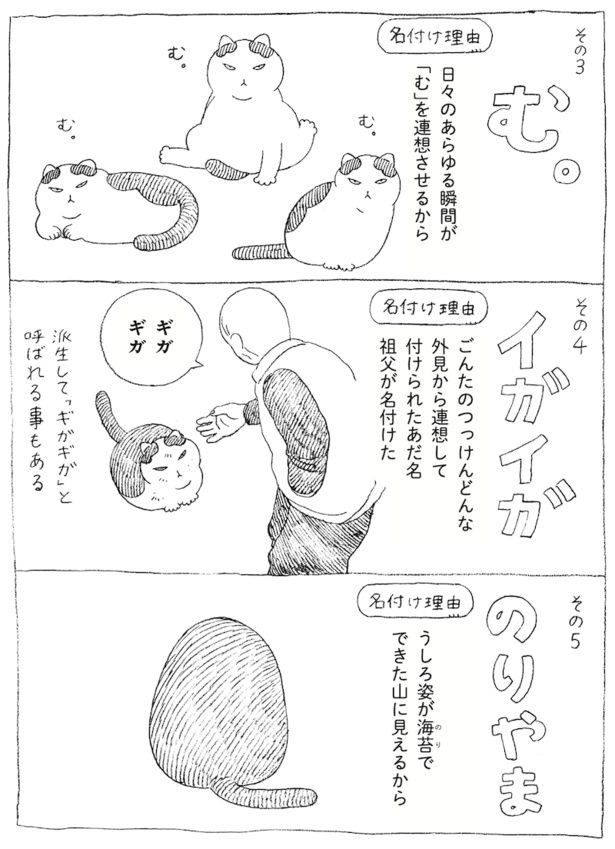 その3
む。
名付け理由
日々のあらゆる瞬間が
「む」を連想させるから
む。
む。
む。
その4
イガイガ
名付け理由
ごんたのつっけんどんな
外見から連想して
付けられたあだ名
祖父が名付けた
ギガ
ギガ
派生して「ギガギガ」と
呼ばれる事もある
その5
のりやま
名付け理由
うしろ姿が海苔で
のり
できた山に見えるから